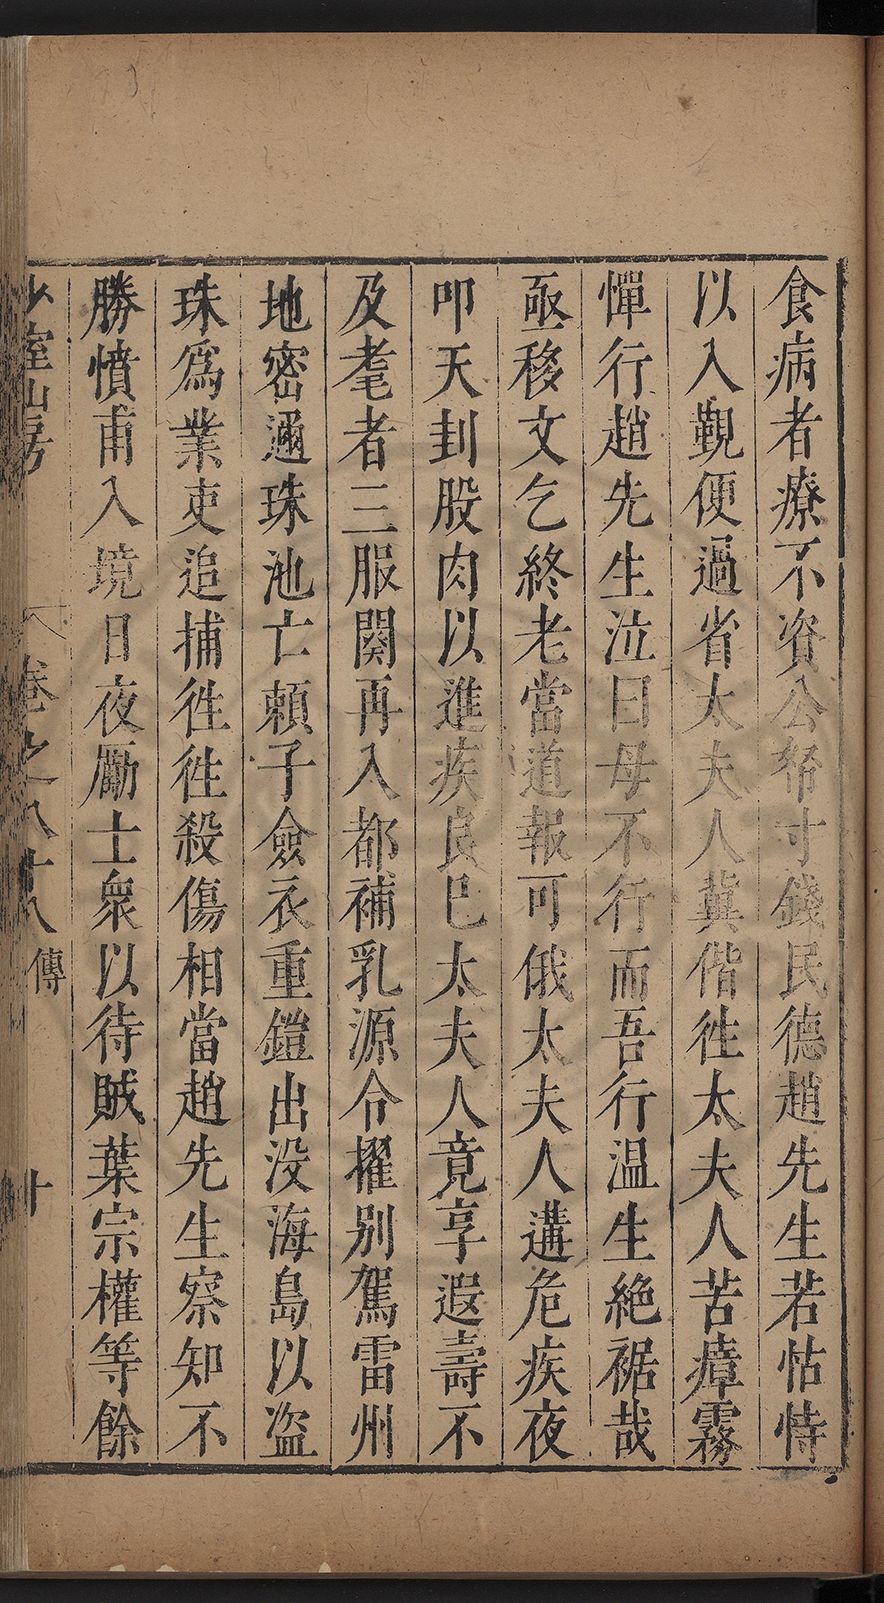 食病者療不資公帑寸錢民德趙先生若怙恃
以入覲便過省太夫人冀偕徃太夫人苦瘴霧
憚行趙先生泣曰母不行而吾行温生絶裾哉
亟移文乞終老當道報可俄太夫人遘危疾夜
叩天刲股肉以進疾良巳太夫人竟享遐壽不
及耄者三服闋再入都補乳源令擢别駕雷州
地密邇珠池亡頼子僉衣重鎧出没海島以盗
珠爲業吏追捕徃徃殺傷相當趙先生察知不
勝憤甫入境日夜勵士衆以待賊葉宗權等餘
少室山房 卷之八十八 傳 十